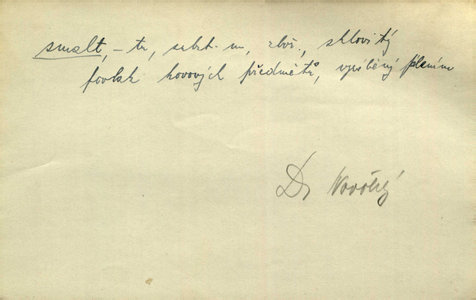 smalt, -tu, subst. m., zbož., sklovitý
povlak kovových předmětů, vyráběný pálením
Dr Novotný